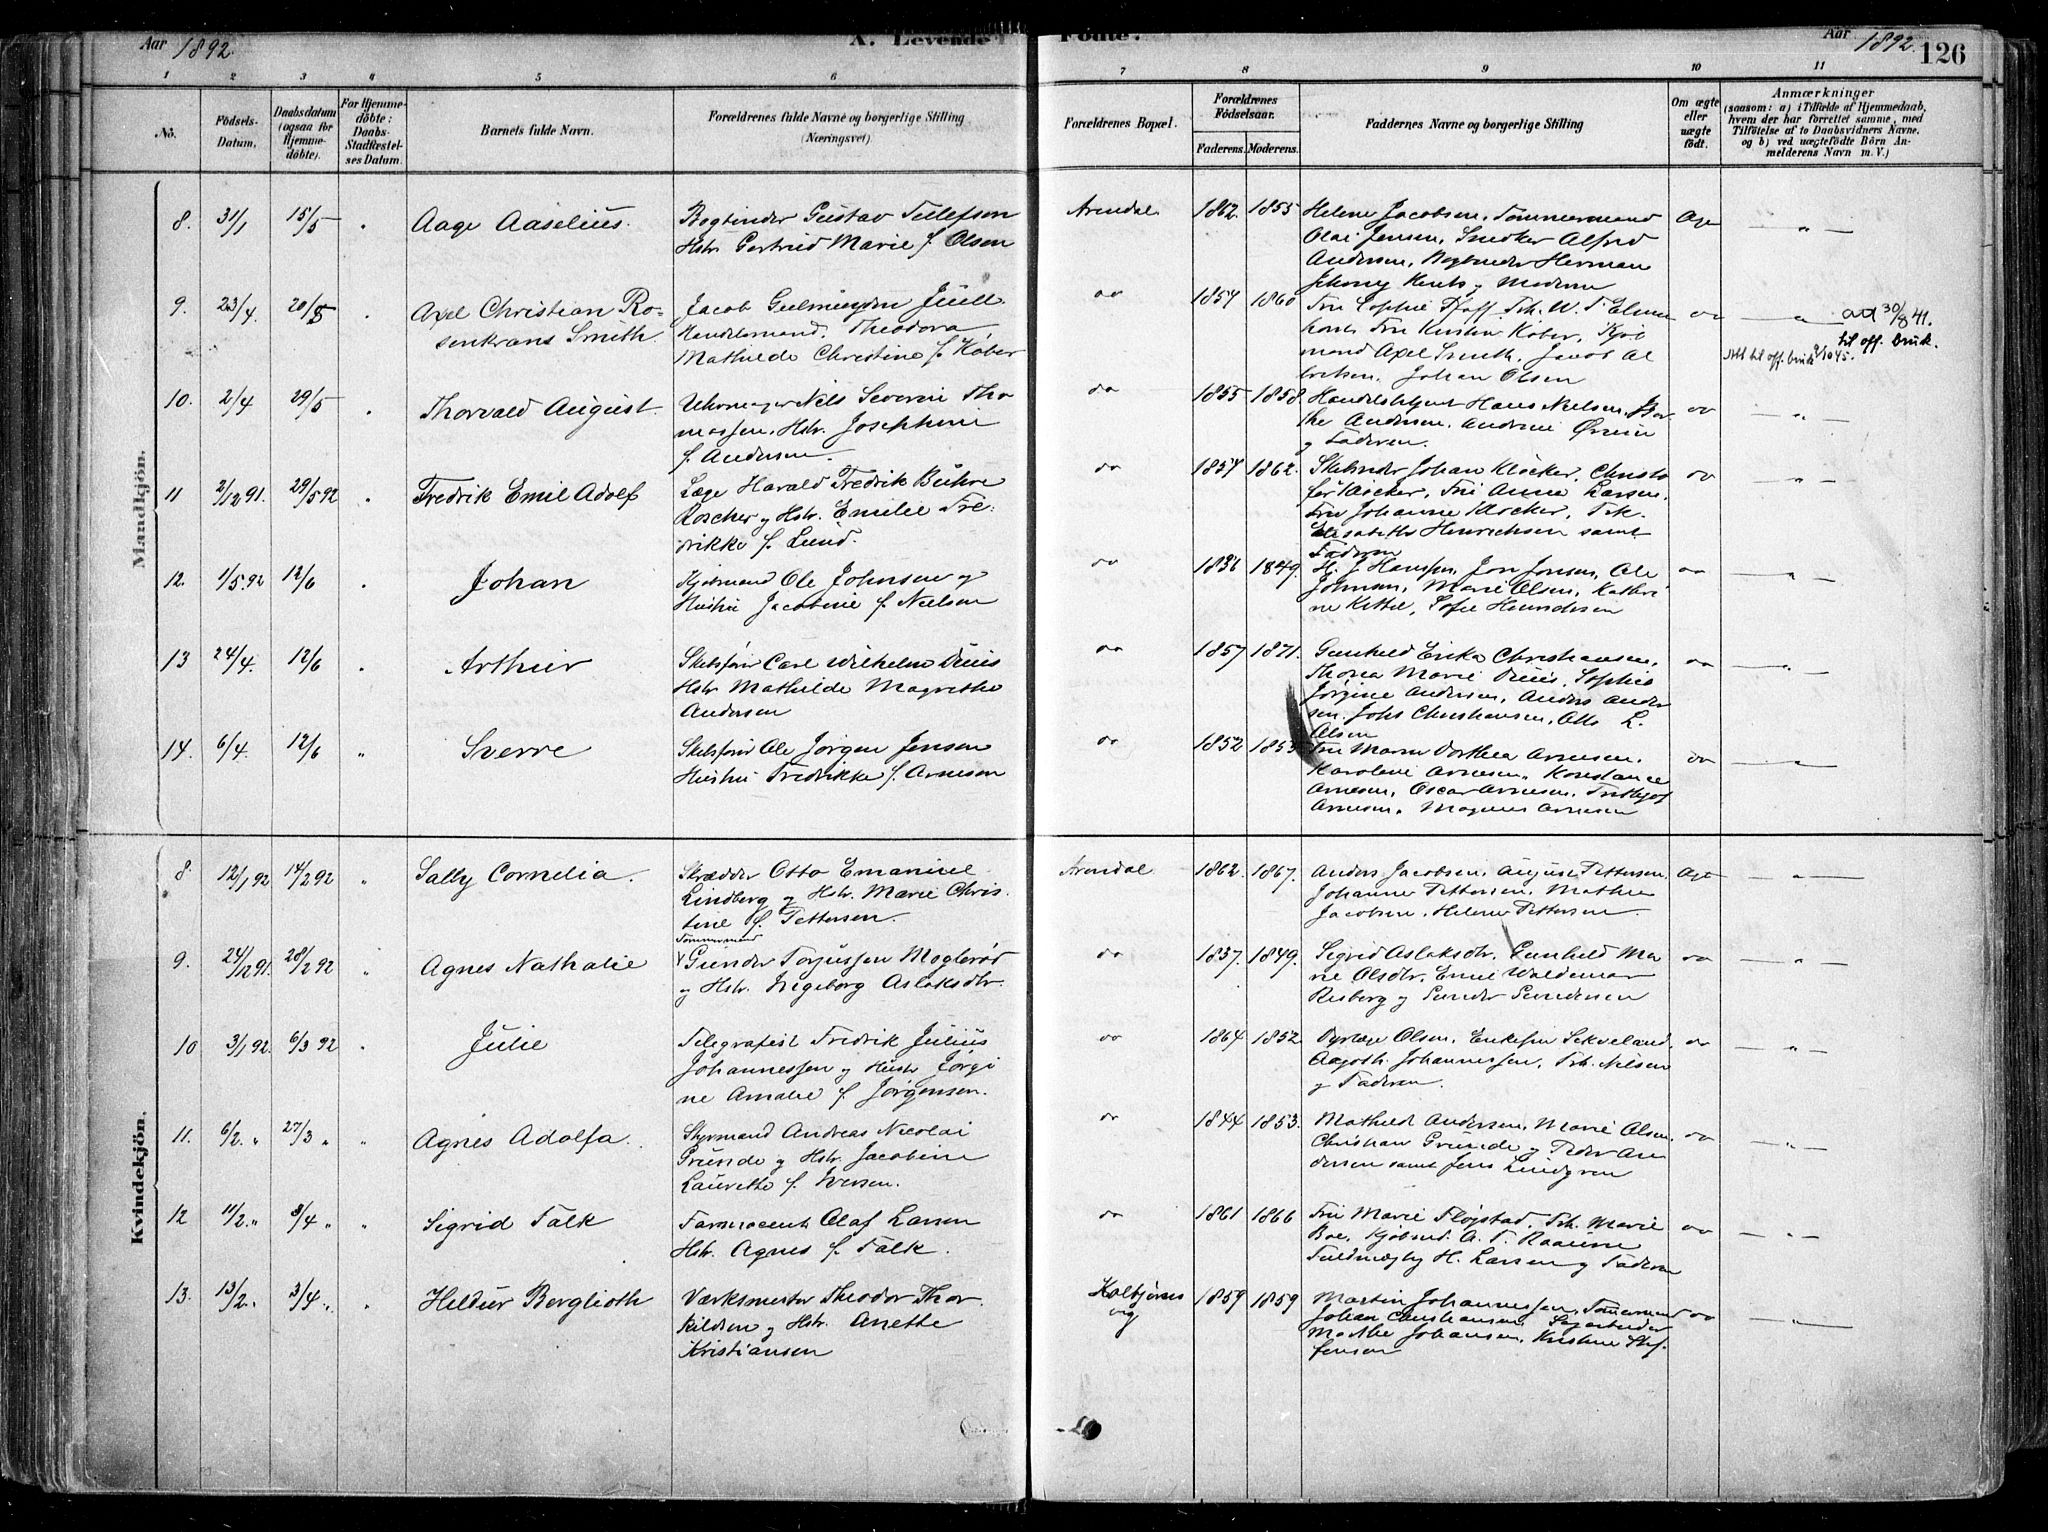 Aar 1892.
X. Levende
Fødte.
Aar 1892.
126
1 2 3 4 5 6 7 8 9 10 11
No.
Fødsels-Datum.
Daabsdatum (ogsaa for Hjemmedøbte).
For Hjemmedøbte: Daabs-Stadfæstelses Datum.
Barnets fulde Navn.
Forældrenes fulde Navne og borgerlige Stilling
(Næringsvei).
Forældrenes Bopæl.
Forældrenes Fødselsaar.
Faderens. Moderens.
Faddernes Navne og borgerlige Stilling
Om ægte eller uægte født.
Anmærkninger
(saasom: a) i Tilfælde af Hjemmedaab,
hvem der har forrettet samme, med
Tilføielse af to Daabsvidners Navne,
og b) ved uægtefødte Børn Anmelderens Navn m. V.)
Mandkjön.
8. 31/1 15/5 Aage Aaselius. Bogbinder Gustav Tellefsen
Hstr Gertrud Marie f. Olsen
Arendal. 1862. 1855 Helene Jacobsen, Tømmermand
Olai Jensen, Snedker Alfred
Andersen, Bogbinder Herman
Moderen
Ægte
9. 23/4. 20/5 Axel Christian Rosenkrans Smith. Jacob Juell
Handelsmand, Theodora
Mathilde Christine f. Køber
do 1857 1860 Fru Sophie Pfaff, Frk. W. T.
Fru Køber, Kjøbmand Axel Smith, Jacob
Johan Olsen
do
att 30/8 41.
til off. bruk.
Att til off. bruk 1945.
10. 2/4 29/5 Thorvald August. Uhrmager Nils Severin Thomassen, Hstr. Josephine
f. Andersen.
do 1855 1858. Handelsbetjent Hans Nielsen,
Andersen, Andreas
og Faderen.
do
11 2/12 91. 29/5 92 Fredrik Emil Adolf Læge Harald Fredrik Bühre
Roscher og Hstr. Emilie Fredrikke f. Lund.
do 1857 1862. Skibsreder Johan Kløcker, Christofer Kløcker, Fru Anne Larsen,
Fru Johanne Kløcker, Frk.
Elisabeth Henrichsen samt
Faderen
do
12. 1/5 92 12/6 Johan Kjøbmand Ole Johnsen og
Hustru Jacobine f. Nielsen
do 1836 1849. H. J. Hanssen, Jon Jonsen, Ole
Johnsen, Marie Olsen, Kathrine Kittel, Sofie
do
13 24/4. 12/6 Arthur Skibsfører Carl Wilhelm Duus
Hstr Mathilde Magrethe
Andersen
do 1857 1871. Gunhild Erika Christiansen,
Thora Marie Duus, Sophie
Jørgine Andersen, Anders Andersen, Johs Christiansen, Otto L.
Olsen
do
14. 6/4. 12/6 Sverre Skibsfører Ole Jørgen Jensen
Hustru Fredrikke f. Arnesen
do 1852 1853 Fru Maren Dorthea Arnesen,
Karoline Arnesen, Konstance
Arnesen, Oscar Arnesen, Frithjof
Arnesen, Magnus Arnesen
do
Kvindekjön.
8. 12/1 92 14/2 92 Sally Cornelia. Skrædder Otto Emanuel
Lindberg og Hstr. Marie Christine f. Pettersen.
Arendal 1862. 1867. Anders Jacobsen, August Pettersen,
Johanne Pettersen, Mathea
Jacobsen, Helene Pettersen.
Ægte
9. 24/12 91. 28/2 92 Agnes Nathalie Tømmermand
Gunder Torjussen Moglerød
og Hstr. Ingeborg Aslaksdtr.
do 1837. 1849. Sigrid Aslaksdtr. Gunhild Marie Olsdtr. Emil Waldemar
Risberg og Gunder Gundersen
do
10 3/1 92. 6/3 92 Julie Telegrafist Fredrik Julius
Johannessen og Hustr Jørgine Amalie f. Jørgensen.
do 1864 1852. Dyrlæge Olsen,
Johannessen, Frk. Nilsen
og Faderen.
do
11. 6/2. " 27/3 " Agnes Adolfa. Styrmand Andreas Nicolai
Grunde og Hstr. Jacobine
Laurette f. Iversen.
do 1844 1853. Mathild Andersen, Marie Olsen,
Christian Grunde og Peder Andersen samt Jens Lindgren
do
12 11/2. " 3/4 " Sigrid Falk Olaf Larsen
Hstr. Agnes f. Falk.
do 1861 1866 Fru Marie Fløjstad, Frk. Marie
Boe, Kjøbmd. A. T.
H. Larsen og Faderen
do
13. 13/2. " 3/4 " Hildur Berglioth Værksmester Theodor Thorkildsen og Hstr. Anette
Kristiansen
Kolbjørnsvig 1859 1859 Martin Johannessen, Tømmermand
Johan Christiansen,
Marthe Johansen, Kristine Steffensen
do